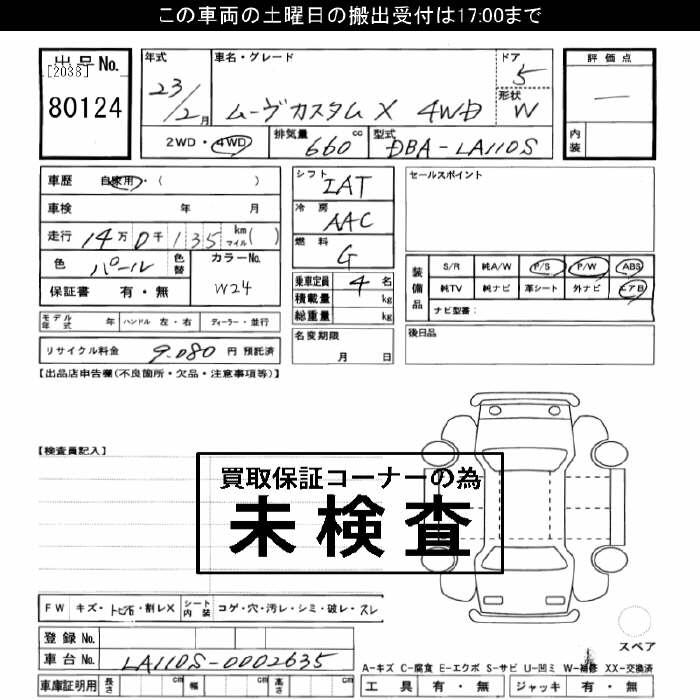 この車両の土曜日の搬出受付は17:00まで
出品No.
[2038]
80124
年式 23/2月
車名・グレード
ムーヴカスタムX 4WD
ドア 5
形状 W
2WD・4WD
排気量 660 cc
型式 DBA-LA110S
評価点
—
内装
車歴 自家用・( )
車検 年 月
走行 14万0千135 km マイル( )
色 パール
色替
カラーNo.
W24
保証書 有・無
モデル年式 年 ハンドル 左・右 ディーラー・並行
リサイクル料金 9.080 円 預託済
シフト IAT
冷房 AAC
燃料 G
乗車定員 4 名
積載量 kg
総重量 kg
名変期限
月 日
セールスポイント
装備品
S/R 純A/W P/S P/W ABS
純TV 純ナビ 革シート 外ナビ エアB
ナビ型番:
後日品
【出品店申告欄(不良箇所・欠品・注意事項等)】
【検査員記入】
買取保証コーナーの為
未検査
FW キズ・トビ石・割レX シート内装 コゲ・穴・汚レ・シミ・破レ・スレ
登録No.
車台No. LA110S-0002635
車庫証明用 長さ cm 幅 cm 高さ cm
スペア
A-キズ C-腐食 E-エクボ S-サビ U-凹ミ W-補修 XX-交換済
工具 有・無 ジャッキ 有・無